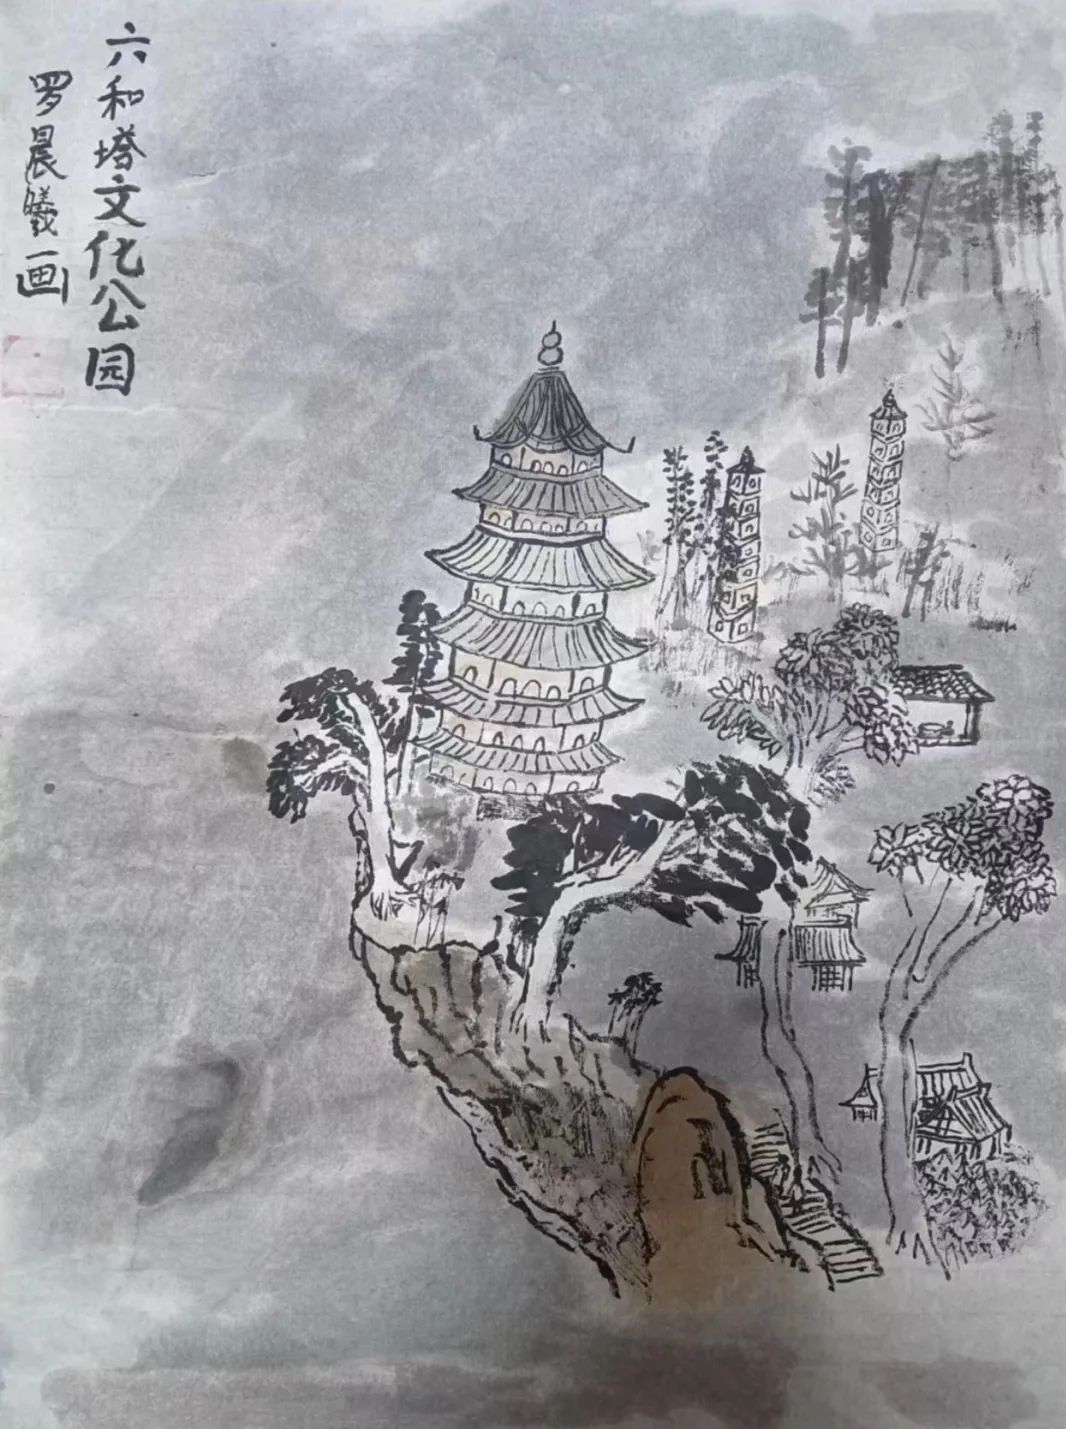 六和塔文化公园
罗晨曦画